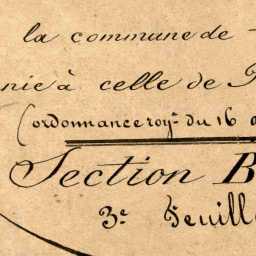 la commune de
nie à celle de
(ordonnance roy.^le du 16
Section B
3.^e Feuille